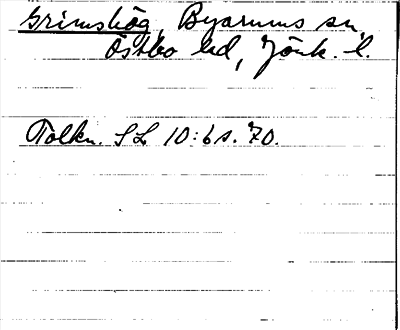 Grimshög, Byarums sn,
Östbo hd, Jönk. l.
Tolkn. SL 10:6 s. 70.